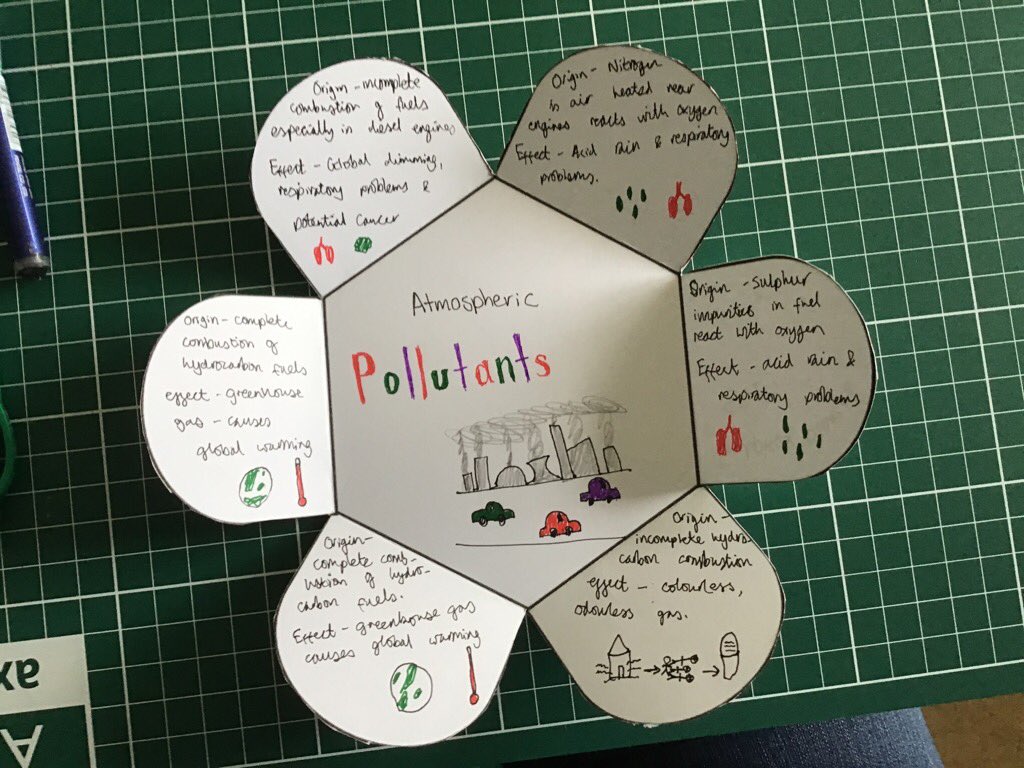 Atmospheric
Pollutants
Origin - incomplete
combustion of fuels
especially in diesel engines
Effect - Global dimming,
respiratory problems &
potential cancer
Origin - Nitrogen
in air heated near
engines reacts with oxygen
Effect - Acid rain & respiratory
problems.
Origin - Sulphur
impurities in fuel
react with oxygen
Effect - acid rain &
respiratory problems
Origin -
incomplete hydro-
carbon combustion
effect - colourless,
odourless gas.
Origin -
complete comb-
ustion of hydro-
carbon fuels.
Effect - greenhouse gas
causes global warming
Origin - complete
combustion of
hydrocarbon fuels
effect - greenhouse
gas - causes
global warming